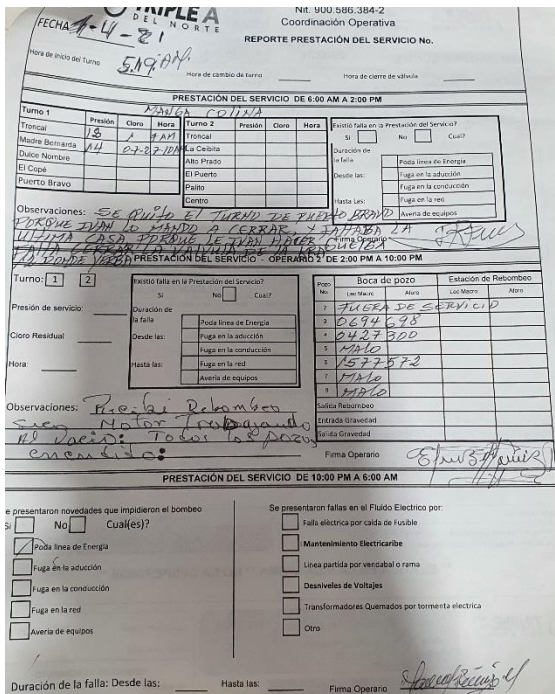 TRIPLE A
DEL NORTE
Nit. 900.586.384-2
Coordinación Operativa
FECHA 1-4-21
REPORTE PRESTACIÓN DEL SERVICIO No.
Hora de inicio del Turno 5:19 AM
Hora de cambio de turno
Hora de cierre de válvula
PRESTACIÓN DEL SERVICIO DE 6:00 AM A 2:00 PM
MANGA COLINA
Turno 1 Presión Cloro Hora Turno 2 Presión Cloro Hora
Existió falla en la Prestación del Servicio?
Si No Cual?
Troncal 18 1 7AM Troncal
Madre Bernarda 14 0-7-2-10AM La Ceibita
Dulce Nombre Alto Prado
El Copé El Puerto
Puerto Bravo Palito
Centro
Duración de
la falla
Desde las:
Hasta Les:
Poda linea de Energia
Fuga en la aducción
Fuga en la conducción
Fuga en la red
Averia de equipos
Observaciones: SE QUITO EL TURNO DE PUERTO BRAVO
PORQUE IVAN LO MANDO A CERRAR, Y FALTABA LA
ULTIMA CASA PORQUE LE IVAN HACER
Firma Operario
FALTA CERRAR LA VALVULA DE LA
DONDE
PRESTACIÓN DEL SERVICIO - OPERARIO 2 DE 2:00 PM A 10:00 PM
Turno: 1 2
Presión de servicio:
Cloro Residual
Hora:
Existió falla en la Prestación del Servicio?
Si No Cual?
Duración de
la falla
Desde las:
Hasta las:
Poda linea de Energia
Fuga en la aducción
Fuga en la conducción
Fuga en la red
Averia de equipos
Pozo No. Boca de pozo Estación de Rebombeo
Lec Macro Aforo Lec Macro Aforo
2 FUERA DE SERVICIO
3 0694698
4 0427300
5 MALO
6 1577572
7 MALO
8 MALO
Salida Rebombeo
Entrada Gravedad
Salida Gravedad
Observaciones: Recibi Rebombeo
Motor Trabajando
Al Vacio: Todos los pozos
encendido:
Firma Operario
PRESTACIÓN DEL SERVICIO DE 10:00 PM A 6:00 AM
e presentaron novedades que impidieron el bombeo
Si No Cual(es)?
Poda linea de Energía
Fuga en la aducción
Fuga en la conducción
Fuga en la red
Averia de equipos
Se presentaron fallas en el Fluido Electrico por:
Falla eléctrica por caida de Fusible
Mantenimiento Electricaribe
Linea partida por vendabal o rama
Desniveles de Voltajes
Transformadores Quemados por tormenta electrica
Otro
Duración de la falla: Desde las: Hasta las:
Firma Operario